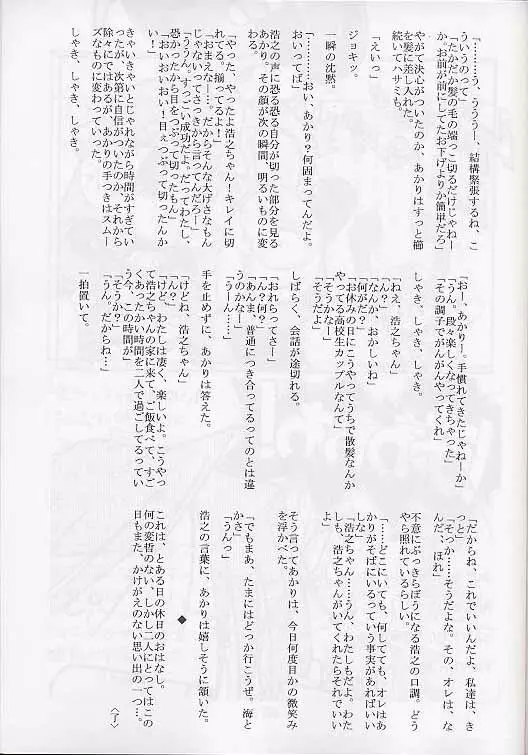 「………う、うううー、結構緊張するね、こ
ういうのって」
「たかだか髪の毛の端っこ切るだけじゃねー
か。お前が前にしてたお下げよりか簡単だろ」
やがて決心がついたのか、あかりはすっと櫛
を髪に差し入れた。
続いてハサミも。
「えいっ」
ジョキッ。
一瞬の沈黙。
「…………おい、あかり？何固まってんだよ。
おいってば」
浩之の声に恐る恐る自分が切った部分を見る
あかり。その顔が次の瞬間、明るいものに変
わる。
「やった、やったよ浩之ちゃん！キレイに切
れてる。揃ってるよ！」
「おまえなー…。だからそんな大げさなもん
じゃないってさっきから言ってんだろー」
「ううん。すっごい成功だよ。だってわたし、
恐かったから目をつぶって切ったもん」
「おいおいおい！目ぇつぶって切ったんか
い！」
きゃいきゃいとじゃれながら時間がすぎてい
ったが、次第に自信がついたのか、それから
除々にではあるが、あかりの手つきはスムー
ズなものに変わっていった。
しゃき、しゃき、しゃき。
「おー、あかりー。手慣れてきたじゃねーか」
「うん。段々楽しくなってきちゃった」
「その調子でがんがんやってくれ」
しゃき、しゃき、しゃき。
「ねえ、浩之ちゃん」
「ん？」
「なんか、おかしいね」
「何がだ？」
「お休みの日にこうやってうちで散髪なんか
やってる高校生カップルなんて」
「そうかなー」
「そうだよ」
しばらく、会話が途切れる。
「おれらってさー」
「ん？何？」
「あんま、普通につき合ってるってのとは違
うのかなー」
「うーん……」
手を止めずに、あかりは答えた。
「けどね、浩之ちゃん」
「ん？」
「けど、わたしは凄く、楽しいよ。こうやっ
て浩之ちゃんの家に来て、ご飯食べて、すご
くあったかい時間を二人で過ごしてるってい
う今、この時間が」
「そうか？」
「うん。だからね…」
一拍置いて。
「だからね、これでいいんだよ、私達は、き
っと」
「そっか……そうだよな。その、オレは、な
んだ、ほれ」
不意にぶっきらぼうになる浩之の口調。どう
やら照れているらしい。
「……どこにいても、何してても、オレはあ
かりがそばにいるっていう事実があればいい
しな」
「浩之ちゃん……うん、わたしもだよ。わた
しも、浩之ちゃんがいてくれたらそれでいい
よ」
そう言ってあかりは、今日何度目かの微笑み
を浮かべた。
「でもまあ、たまにはどっか行こうぜ。海と
かさ」
「うんっ」
浩之の言葉に、あかりは嬉しそうに頷いた。
◆
これは、とある日の休日のおはなし。
何の変哲のない、しかし二人にとってはこの
日もまた、かけがえのない思い出の一つ…。
〈了〉